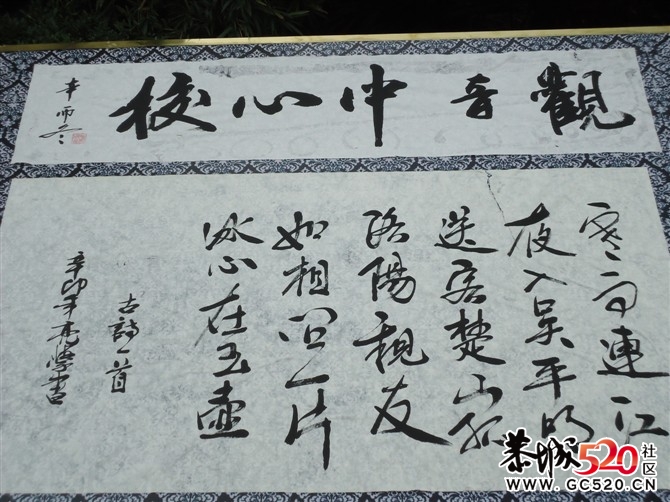 觀音中心校
寒雨連江
夜入吳平明
送客楚山孤
洛陽親友
如相問一片
冰心在玉壺
古詩一首
恭城520社区
WWW.GC520.CN